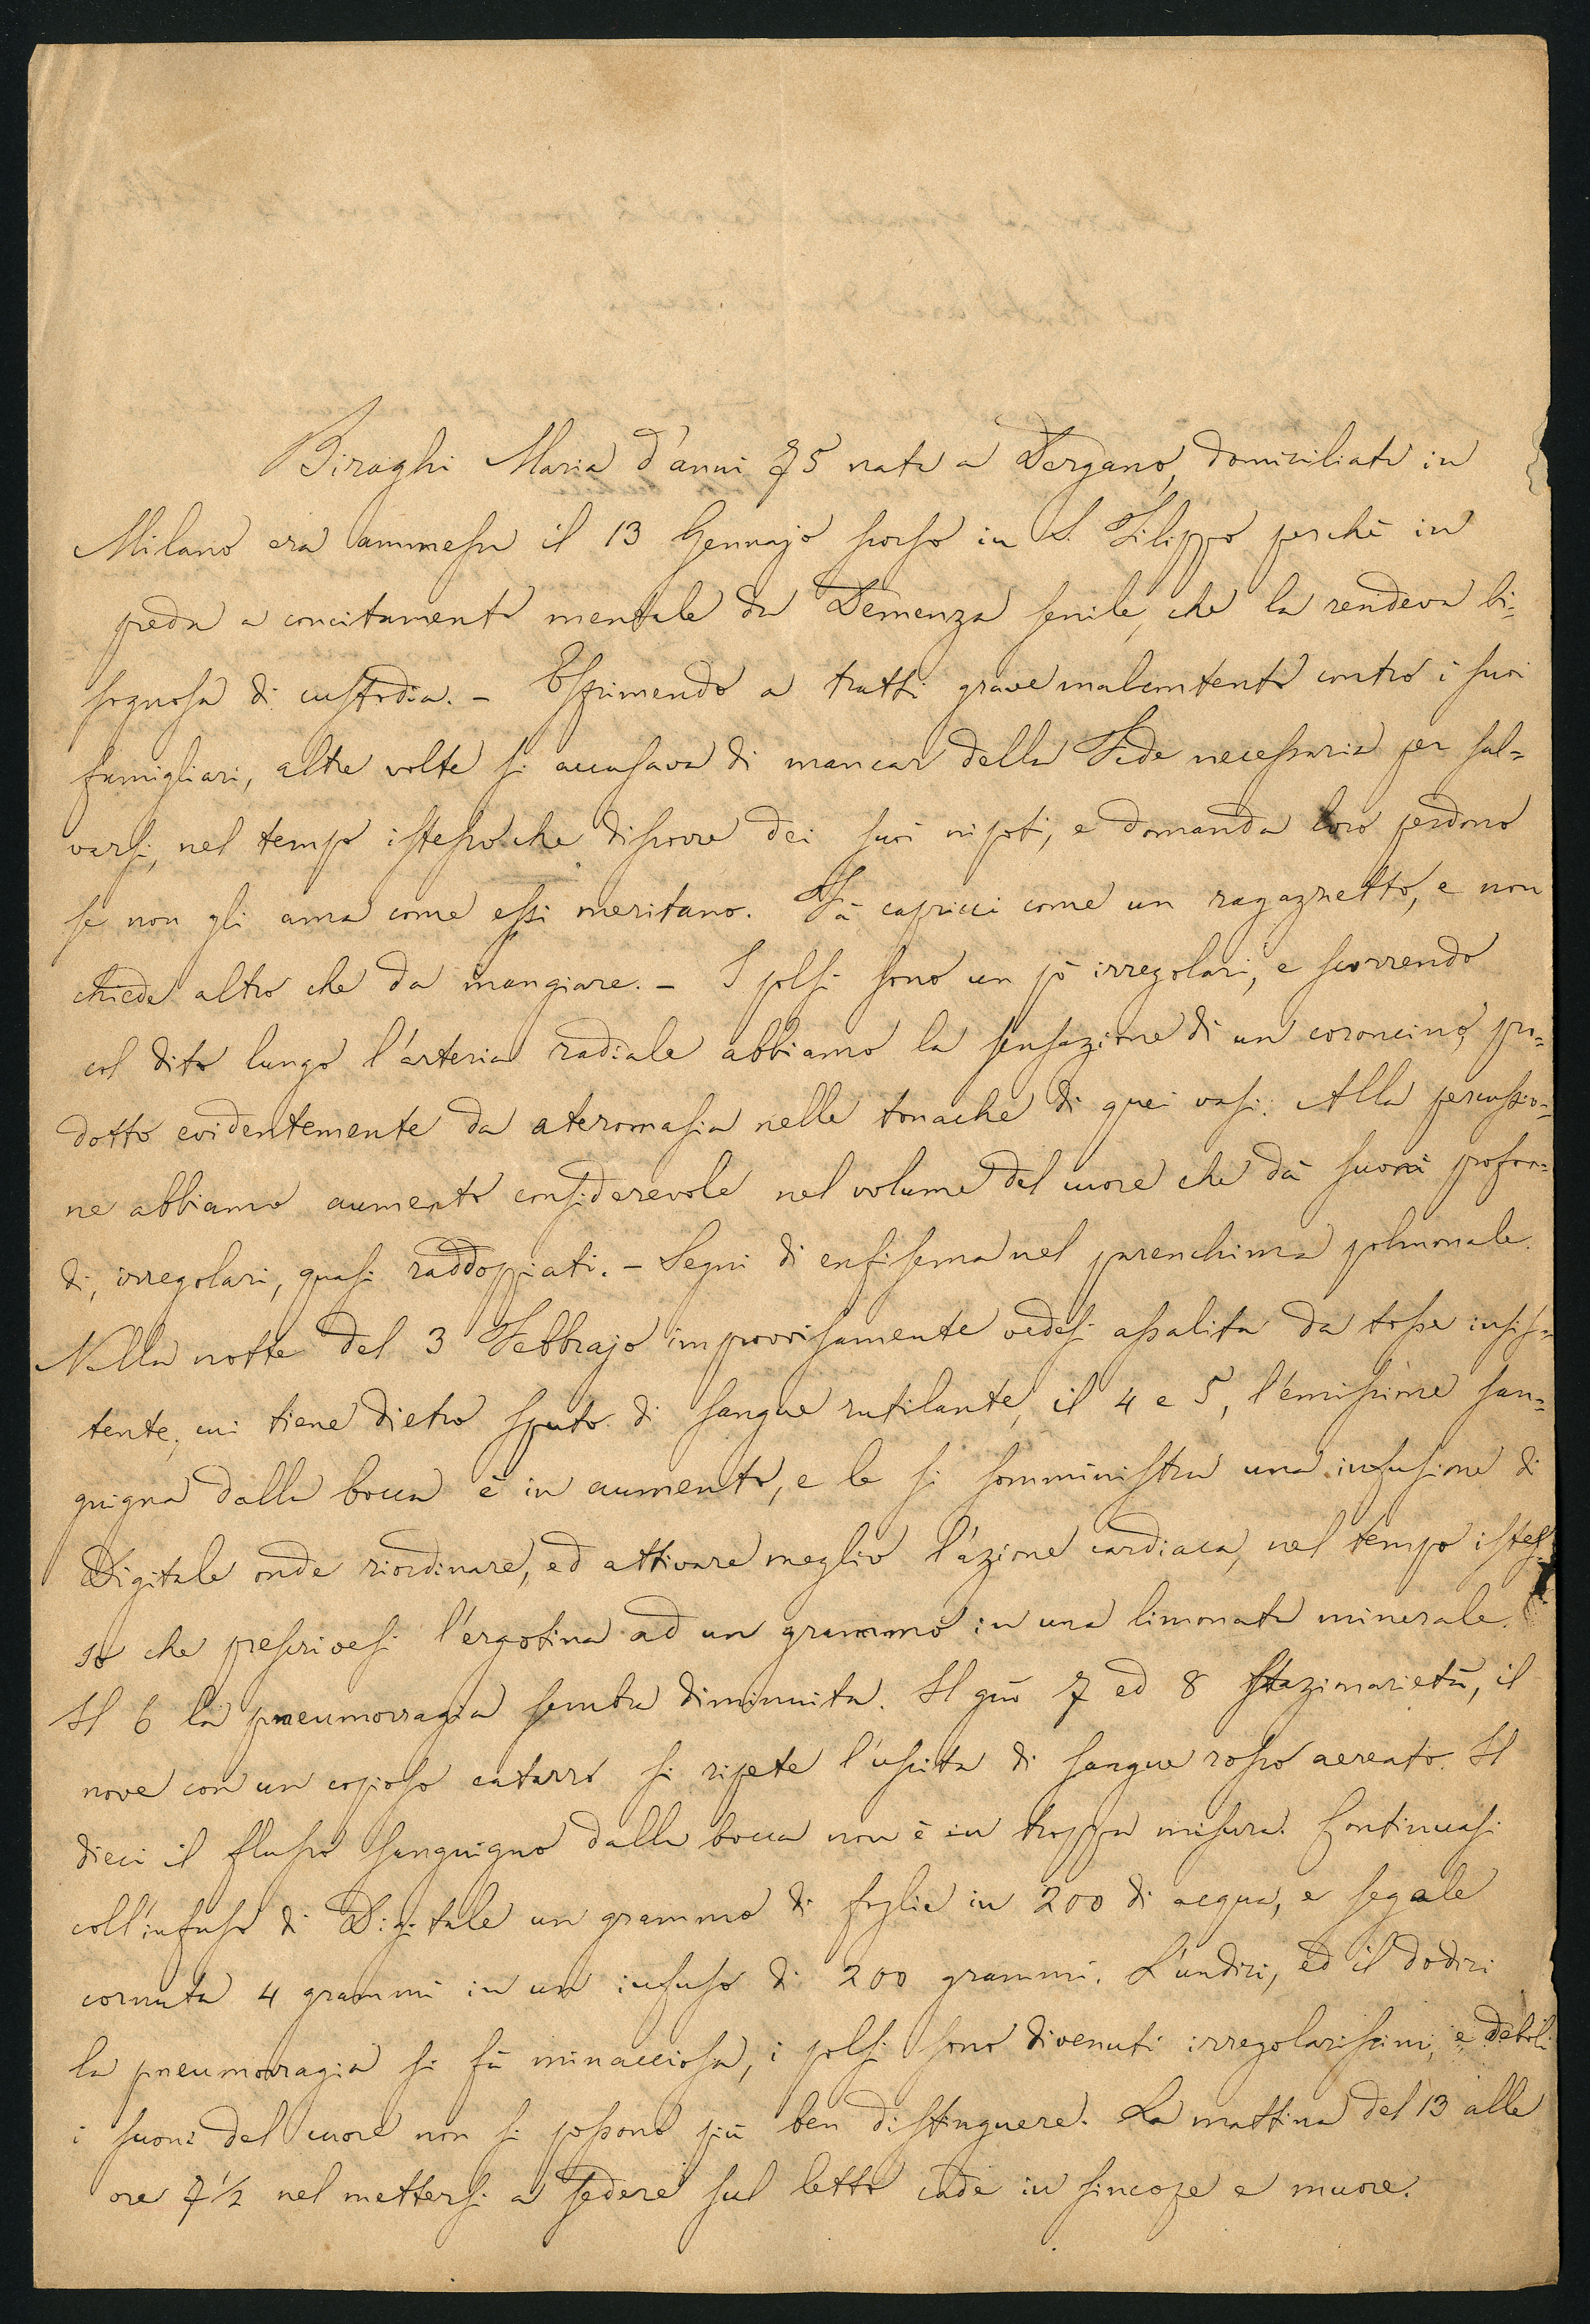 Biraghi Maria d'anni 75 nata a Dergano, domiciliata in
Milano era ammessa il 13 Gennajo scorso in S. Filippo perchè in
preda a concitamento mentale da Demenza senile, che la rendeva bi=
sognosa di custodia. - Esprimendo a tratti grave malcontento contro i suoi
famigliari, altre volte si accusava di mancar della Fede necessaria per sal=
varsi, nel tempo istesso che discorre dei suoi nipoti, e domanda loro perdono
se non gli ama come essi meritano. Fà capricci come un ragazzetto, e non
chiede altro che da mangiare. - I polsi sono un pò irregolari, e scorrendo
col dito lungo l'arteria radiale abbiamo la sensazione di un coroncino, pro=
dotto evidentemente da ateromasia nelle tonache di quei vasi. Alla percussio=
ne abbiamo aumento considerevole nel volume del cuore che dà suoni profon=
di, irregolari, quasi raddoppiati. - Segni di enfisema nel parenchima polmonale.
Nella notte del 3 Febbrajo improvisamente vedesi assalita da tosse insis=
tente, cui tiene dietro sputo di sangue rutilante, il 4 e 5, l'emissione san=
guigna dalla bocca è in aumento, e le si somministra una infusione di
Digitale onde riordinare, ed attivare meglio l'azione cardiaca, nel tempo istes=
so che prescrivesi l'ergotina ad un grammo in una limonata minerale.
Il 6 la pneumorragia sembra diminuita. Il giò 7 ed 8 stazionarietà, il
nove con un copioso catarro si ripete l'uscita di sangue rosso aereato. Il
dieci il flusso sanguigno dalla bocca non è in troppa misura. Continuasi
coll'infuso di Digitale un grammo di foglie in 200 di acqua, e segale
cornuta 4 grammi in un infuso di 200 grammi. L'undici, ed il dodici
la pneumorragia si fà minacciosa, i polsi sono divenuti irregolarissimi, e deboli
i suoni del cuore non si possono più ben distinguere. La mattina del 13 alle
ore 7½ nel mettersi a sedere sul letto cade in sincope e muore.